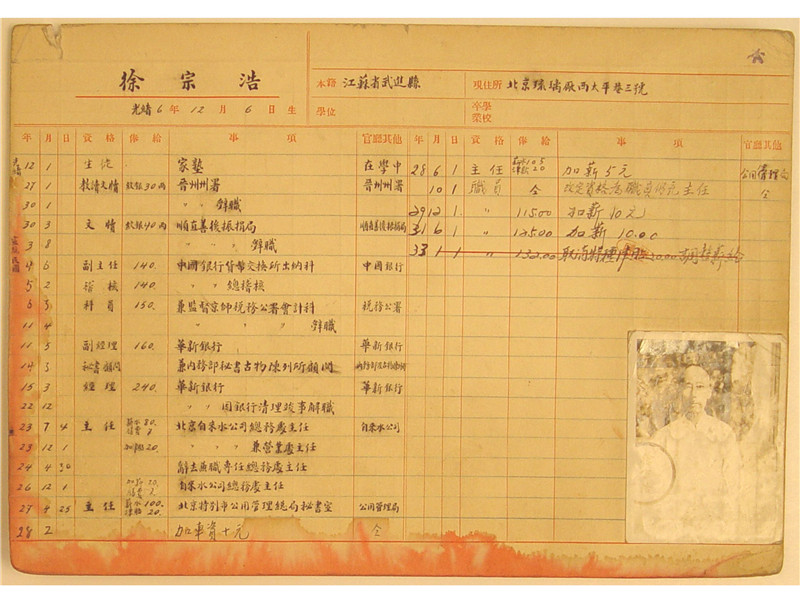 徐宗浩
光緒6年12月6日生
本籍 江蘇省武進縣
學位
現住所 北京琉璃廠西太平巷三號
卒業學校
年 月 日 資格 俸給 事項 官廳其他
12 1 生徒 家塾 在學中
27 1 教讀文牘 月銀30兩 晉州州署 晉州州署
30 1 〃 〃 辭職
30 3 文牘 月銀40兩 順直善後振捐局 順直善後振捐局
3 8 〃 〃 辭職
4 6 副主任 140. 中國銀行貨幣交換所出納科 中國銀行
5 2 稽核 140. 〃 〃 總稽核
6 3 科員 150. 兼監督京師稅務公署會計科 稅務公署
11 4 〃 〃 〃 〃 辭職
11 5 副經理 160. 華新銀行 華新銀行
14 3 秘書顧問 兼內務部秘書古物陳列所顧問
15 3 經理 240. 華新銀行 華新銀行
22 12 〃 〃 因銀行清理竣事解職
23 7 4 主任 薪水80. 北京自來水公司總務處主任 自來水公司
23 12 1 加薪20. 〃 〃 兼營業處主任
24 4 30 辭去兼職專任總務處主任
26 12 1 加薪20. 自來水公司總務處主任
27 4 25 主任 薪水100. 津貼20. 北京特別市公用管理總局秘書室 公用管理局
28 2 加車資十元 仝
年 月 日 資格 俸給 事項 官廳其他
28 6 1 主任 薪水105 津貼20 加薪5元 公用管理局
10 1 職員 仝 改定資格為職員仍充主任 仝
29 12 1 〃 115.00 加薪10元
31 6 1 〃 125.00 加薪10.00
33 1 1 〃 132.00 取消